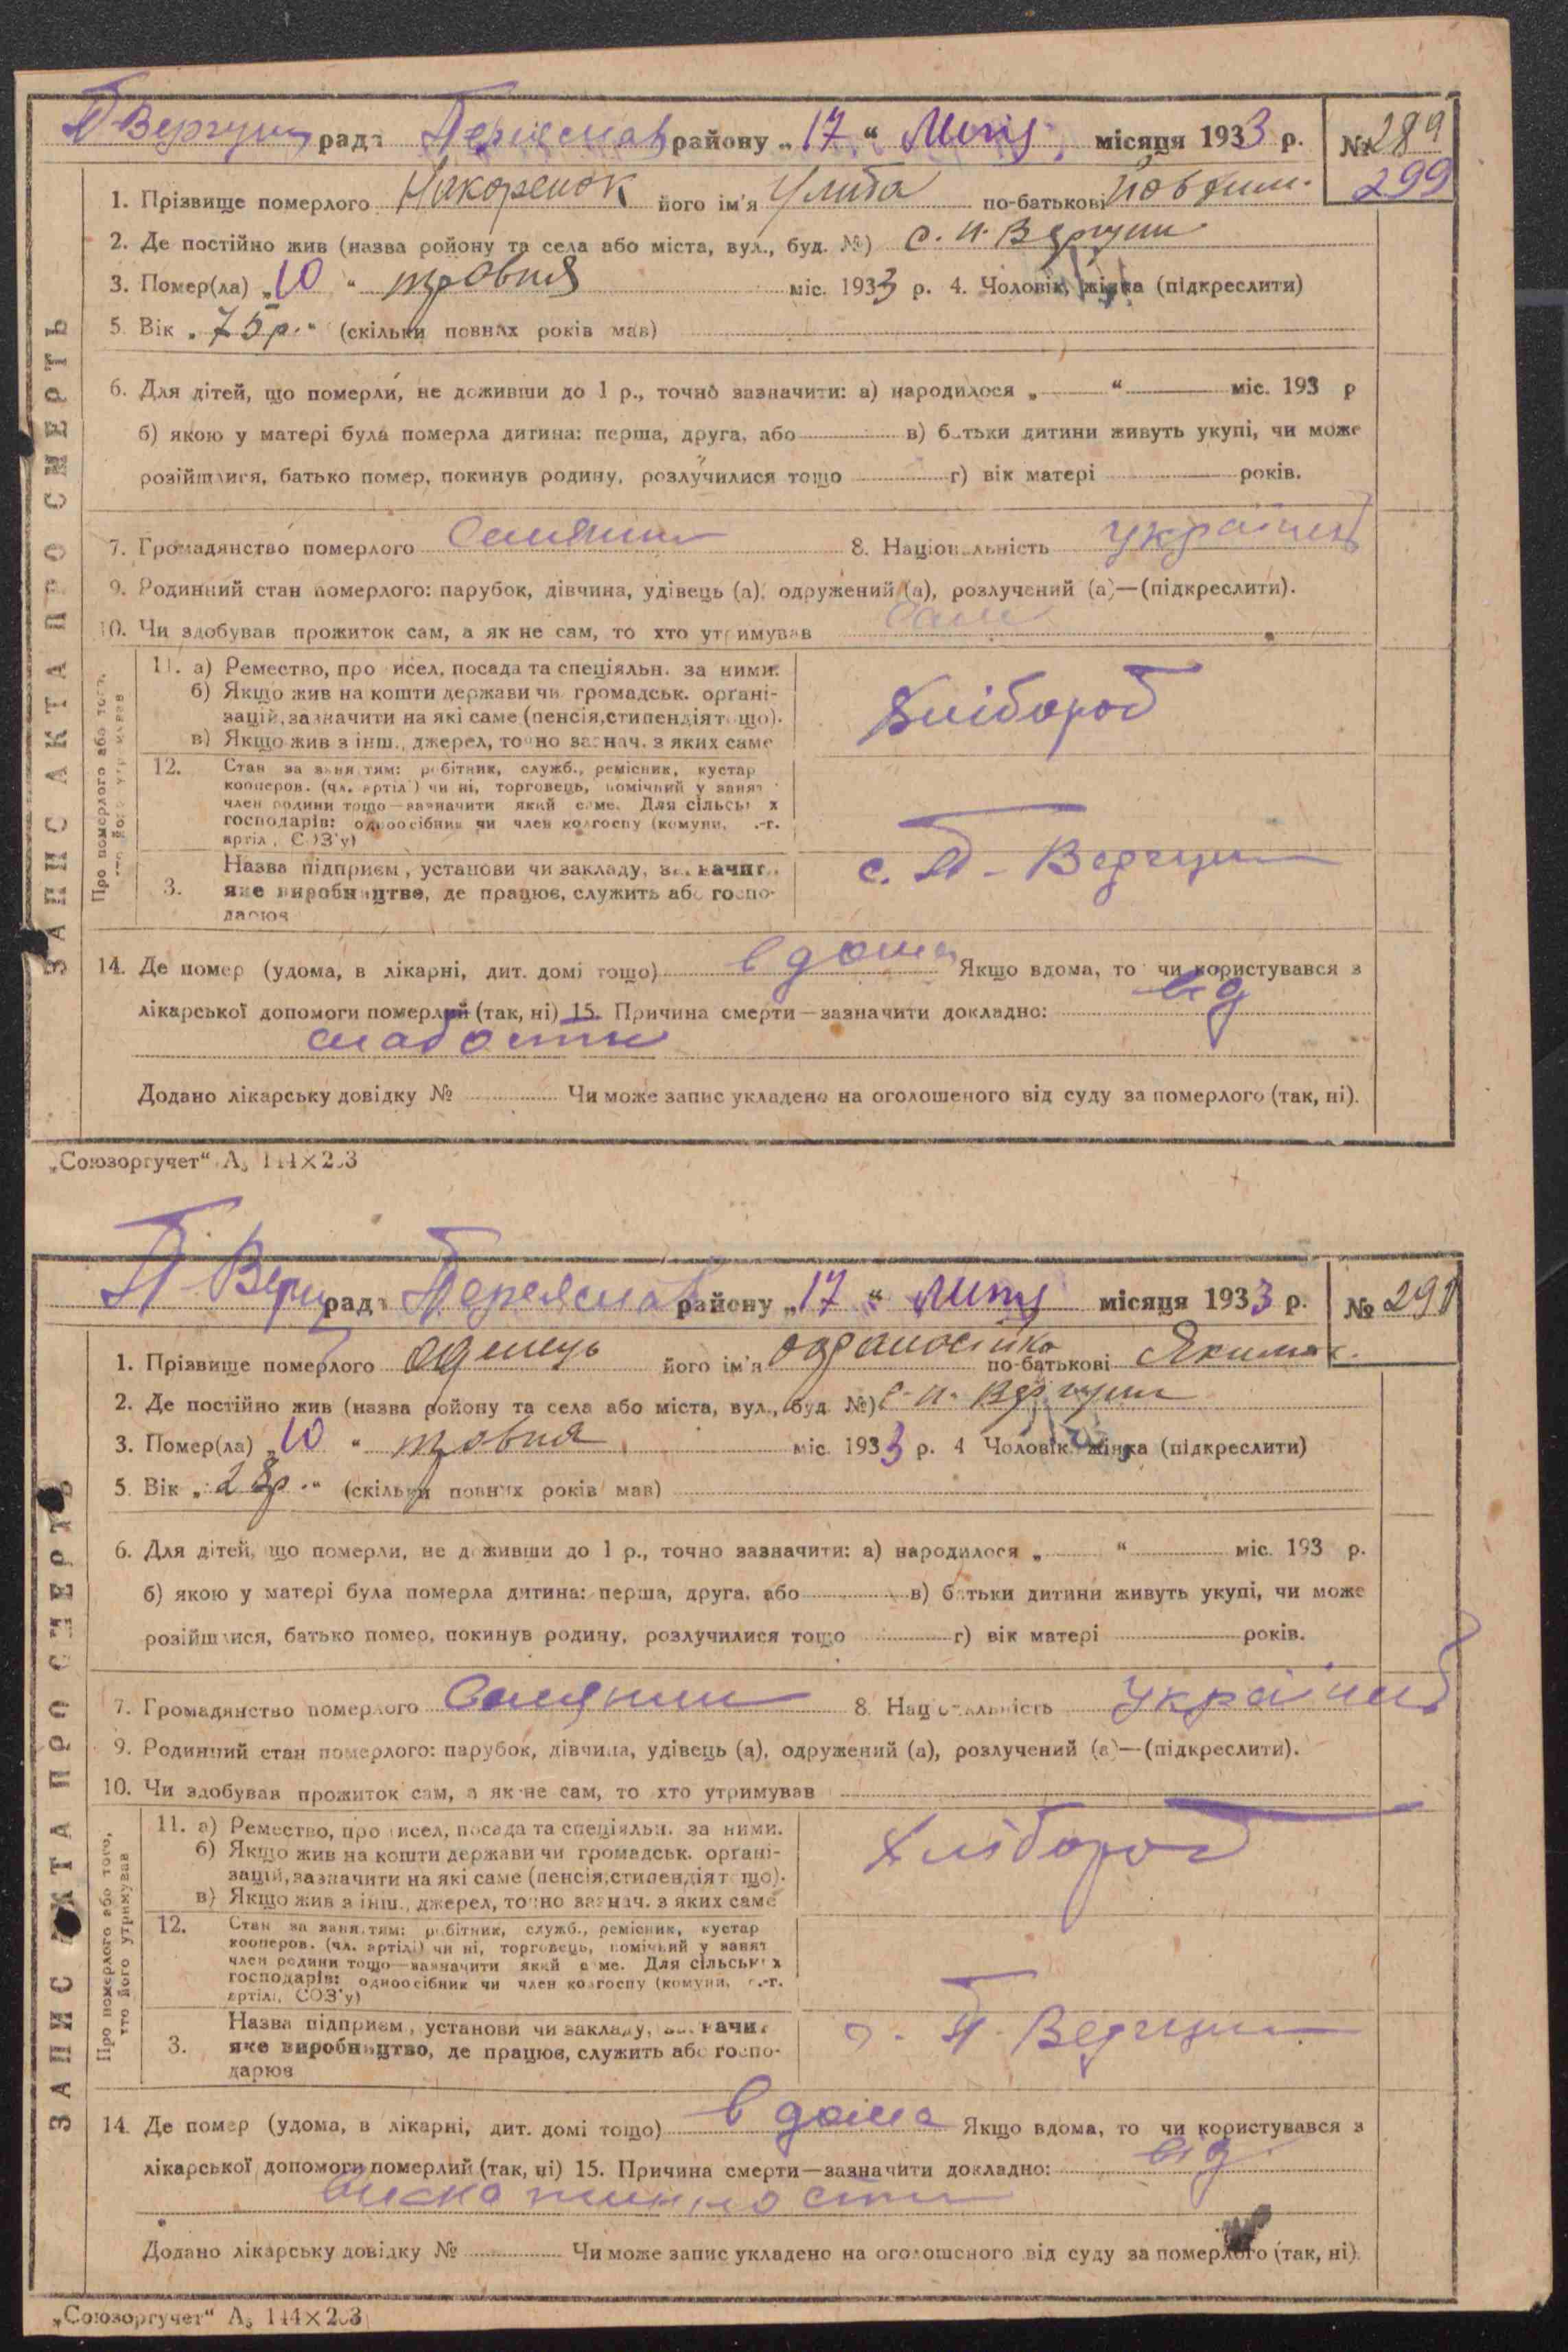 П-Вергуни рада Переяслав району „17“ Липц місяця 1933 р. № 289
299
1. Прізвище померлого його ім'я Улита по-батькові Йовхим.
2. Де постійно жив (назва ройону та села або міста, вул., буд. №) с. п. Вергуни
3. Помер(ла) „10“ травня міс. 1933 р. 4. Чоловік, жінка (підкреслити)
5. Вік „75 р.“ (скільки повних років мав)
6. Для дітей, що померли, не доживши до 1 р., точно зазначити: а) народилося „ “ міс. 193 р
б) якою у матері була померла дитина: перша, друга, або в) батьки дитини живуть укупі, чи може
розійшлися, батько помер, покинув родину, розлучилися тощо г) вік матері років.
7. Громадянство померлого Селянин 8. Національність україн
9. Родинний стан померлого: парубок, дівчина, удівець (а), одружений (а), розлучений (а)—(підкреслити).
10. Чи здобував прожиток сам, а як не сам, то хто утримував сам
ЗАПИС АКТА ПРО СМЕРТЬ
Про померлого або того,
хто його утримував
11. а) Ремество, промисел, посада та спеціяльн. за ними.
б) Якщо жив на кошти держави чи громадськ. орґані-
зацій, зазначити на які саме (пенсія, стипендія тощо).
в) Якщо жив з інш., джерел, точно зазнач. з яких саме
Хлібороб
12. Стан за заняттям: робітник, служб., ремісник, кустар
кооперов. (чл. артілі) чи ні, торговець, помічний у занят
член родини тощо—зазначити який саме. Для сільських
господарів: одноосібник чи член колгоспу (комуни, с.-г.
артілі, СОЗ'у)
3. Назва підприєм, установи чи закладу, зазначит
яке виробництво, де працює, служить або госпо-
дарює
с. П-Вергуни
14. Де помер (удома, в лікарні, дит. домі тощо) в дома Якщо вдома, то чи користувався з
лікарської допомоги померлий (так, ні) 15. Причина смерти—зазначити докладно: від
слабости
Додано лікарську довідку № Чи може запис укладено на оголошеного від суду за померлого (так, ні).
„Союзоргучет“ А₅ 144×203
П-Верг рада Переяслав району „17“ Липц місяця 1933 р. № 291
1. Прізвище померлого його ім'я по-батькові Якимов.
2. Де постійно жив (назва ройону та села або міста, вул., буд. №) с. п. Вергуни
3. Помер(ла) „10“ травня міс. 1933 р. 4 Чоловік, жінка (підкреслити)
5. Вік „28 р.“ (скільки повних років мав)
6. Для дітей, що померли, не доживши до 1 р., точно зазначити: а) народилося „ “ міс. 193 р.
б) якою у матері була померла дитина: перша, друга, або в) батьки дитини живуть укупі, чи може
розійшлися, батько помер, покинув родину, розлучилися тощо г) вік матері років.
7. Громадянство померлого Селянин 8. Національність україн
9. Родинний стан померлого: парубок, дівчина, удівець (а), одружений (а), розлучений (а)—(підкреслити).
10. Чи здобував прожиток сам, а як не сам, то хто утримував
ЗАПИС АКТА ПРО СМЕРТЬ
Про померлого або того,
хто його утримував
11. а) Ремество, промисел, посада та спеціяльн. за ними.
б) Якщо жив на кошти держави чи громадськ. орґані-
зацій, зазначити на які саме (пенсія, стипендія тощо).
в) Якщо жив з інш., джерел, точно зазнач. з яких саме
Хлібороб
12. Стан за заняттям: робітник, служб., ремісник, кустар
кооперов. (чл. артілі) чи ні, торговець, помічний у занят
член родини тощо—зазначити який саме. Для сільських
господарів: одноосібник чи член колгоспу (комуни, с.-г.
артілі, СОЗ'у)
3. Назва підприєм, установи чи закладу, зазначит
яке виробництво, де працює, служить або госпо-
дарює
с. П-Вергуни
14. Де помер (удома, в лікарні, дит. домі тощо) в дома Якщо вдома, то чи користувався з
лікарської допомоги померлий (так, ні) 15. Причина смерти—зазначити докладно: від
Додано лікарську довідку № Чи може запис укладено на оголошеного від суду за померлого (так, ні).
„Союзоргучет“ А₅ 144×203